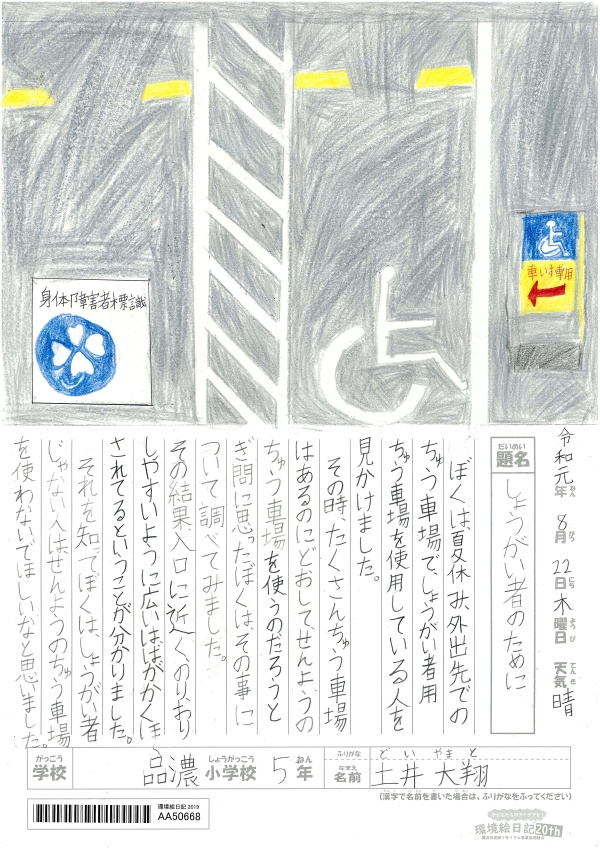 身体障害者標識
車いす専用
令和元年 8月 22日 木曜日 天気 晴
ねん がつ にち ようび てんき
だいめい
題名
しょうがい者のために
ぼくは夏休み、外出先での
ちゅう車場で、しょうがい者用
ちゅう車場を使用している人を
見かけました。
その時、たくさんちゅう車場
はあるのにどおして、せんようの
ちゅう車場を使うのだろうと
ぎ問に思ったぼくは、その事に
ついて調べてみました。
その結果入口に近く、のり、おり
しやすいように広いはばがかくほ
されてるということが分かりました。
それを知ってぼくは、しょうがい者
じゃない人はせんようのちゅう車場
を使わないでほしいなと思いました。
がっこう
学校
品濃 小学校 5年
しょうがっこう ねん
ふりがな どい やまと
なまえ
名前 土井 大翔
(漢字で名前を書いた場合は、ふりがなをふってください)
環境絵日記 2019
AA50668
環境絵日記 20th